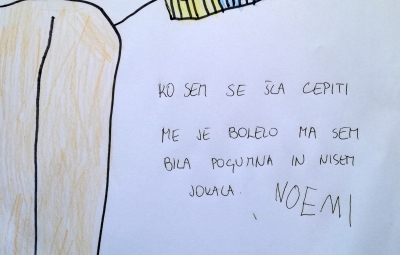 KO SEM SE ŠLA CEPITI
ME JE BOLELO MA SEM
BILA POGUMNA IN NISEM
JOKALA.
NOEMI